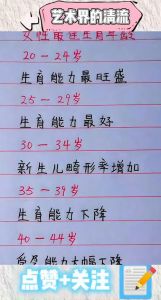 艺术界的清流
女性最佳生育年龄
20－24岁
生育能力最旺盛
25－29岁
生育能力最好
30－34岁
新生儿畸形率增加
35－39岁
生育能力下降
40－44岁
生育能力大幅下降
点赞+关注